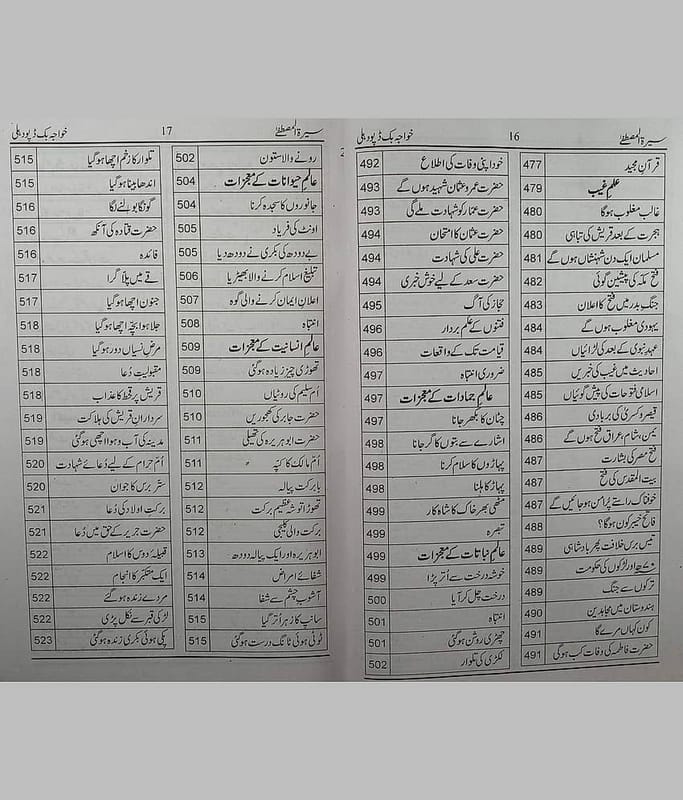 سیرۃ المصطفےٰ 16 خواجہ بک ڈپو دہلی
قرآن مجید 477
علم غیب 479
غالب مغلوب ہوگا 480
ہجرت کے بعد قریش کی تباہی 480
مسلمان ایک دن شہنشاہ ہوں گے 481
فتح مکہ کی پیشین گوئی 482
جنگ بدر میں فتح کا اعلان 483
یہودی مغلوب ہوں گے 484
عہد نبوی کے بعد کی لڑائیاں 484
احادیث میں غیب کی خبریں 485
اسلامی فتوحات کی پیش گوئیاں 485
قیصر و کسریٰ کی بربادی 486
یمن، شام، عراق فتح ہوں گے 486
فتح مصر کی بشارت 487
بیت المقدس کی فتح 487
خوفناک راستے پرامن ہو جائیں گے 487
فاتح خیبر کون ہوگا؟ 488
تیس برس خلافت پھر بادشاہی 489
۷۰ھ اور لڑکوں کی حکومت 489
ترکوں سے جنگ 489
ہندوستان میں مجاہدین 490
کون کہاں مرے گا 491
حضرت فاطمہ کی وفات کب ہوگی 491
خود اپنی وفات کی اطلاع 492
حضرت عمر و عثمان شہید ہوں گے 493
حضرت عمار کو شہادت ملے گی 493
حضرت عثمان کا امتحان 494
حضرت علی کی شہادت 494
حضرت سعد کے لیے خوش خبری 494
حجاز کی آگ 495
فتنوں کے علم بردار 496
قیامت تک کے واقعات 496
ضروری انتباہ 497
عالم جمادات کے معجزات 497
چٹان کا بکھر جانا 497
اشارے سے بتوں کا گر جانا 498
پہاڑوں کا سلام کرنا 498
پہاڑ کا ہلنا 498
مٹھی بھر خاک کا شاہ کار 499
تبصرہ 499
عالم نباتات کے معجزات 499
خوشہ درخت سے اتر پڑا 499
درخت چل کر آیا 500
انتباہ 501
چھڑی روشن ہوگئی 501
لکڑی کی تلوار 502
سیرۃ المصطفےٰ 17 خواجہ بک ڈپو دہلی
رونے والا ستون 502
عالم حیوانات کے معجزات 504
جانوروں کا سجدہ کرنا 504
اونٹ کی فریاد 505
بے دودھ کی بکری نے دودھ دیا 505
تبلیغ اسلام کرنے والا بھیڑیا 506
اعلان ایمان کرنے والی گوہ 507
انتباہ 508
عالم انسانیت کے معجزات 509
تھوڑی چیز زیادہ ہوگئی 509
ام سلیم کی روٹیاں 510
حضرت جابر کی کھجوریں 510
حضرت ابوہریرہ کی تھیلی 511
ام مالک کا کپہ 511
بابرکت پیالہ 512
تھوڑا توشہ عظیم برکت 512
برکت والی کلیجی 512
ابوہریرہ اور ایک پیالہ دودھ 513
شفائے امراض 514
آشوب چشم سے شفا 514
سانپ کا زہر اتر گیا 515
ٹوٹی ہوئی ٹانگ درست ہوگئی 515
تلوار کا زخم اچھا ہوگیا 515
اندھا بینا ہوگیا 515
گونگا بولنے لگا 516
حضرت قتادہ کی آنکھ 516
فائدہ 516
قے میں پلا گرا 517
جنون اچھا ہوگیا 517
جلا ہوا بچہ اچھا ہوگیا 518
مرض نسیاں دور ہوگیا 518
مقبولیت دعا 518
قریش پر قحط کا عذاب 518
سرداران قریش کی ہلاکت 519
مدینہ کی آب و ہوا اچھی ہوگئی 519
ام حرام کے لیے دعائے شہادت 520
ستر برس کا جوان 520
برکت اولاد کی دعا 521
حضرت جریر کے حق میں دعا 521
قبیلہ دوس کا اسلام 522
ایک متکبر کا انجام 522
مردے زندہ ہوگئے 522
لڑکی قبر سے نکل پڑی 522
پکی ہوئی بکری زندہ ہوگئی 523